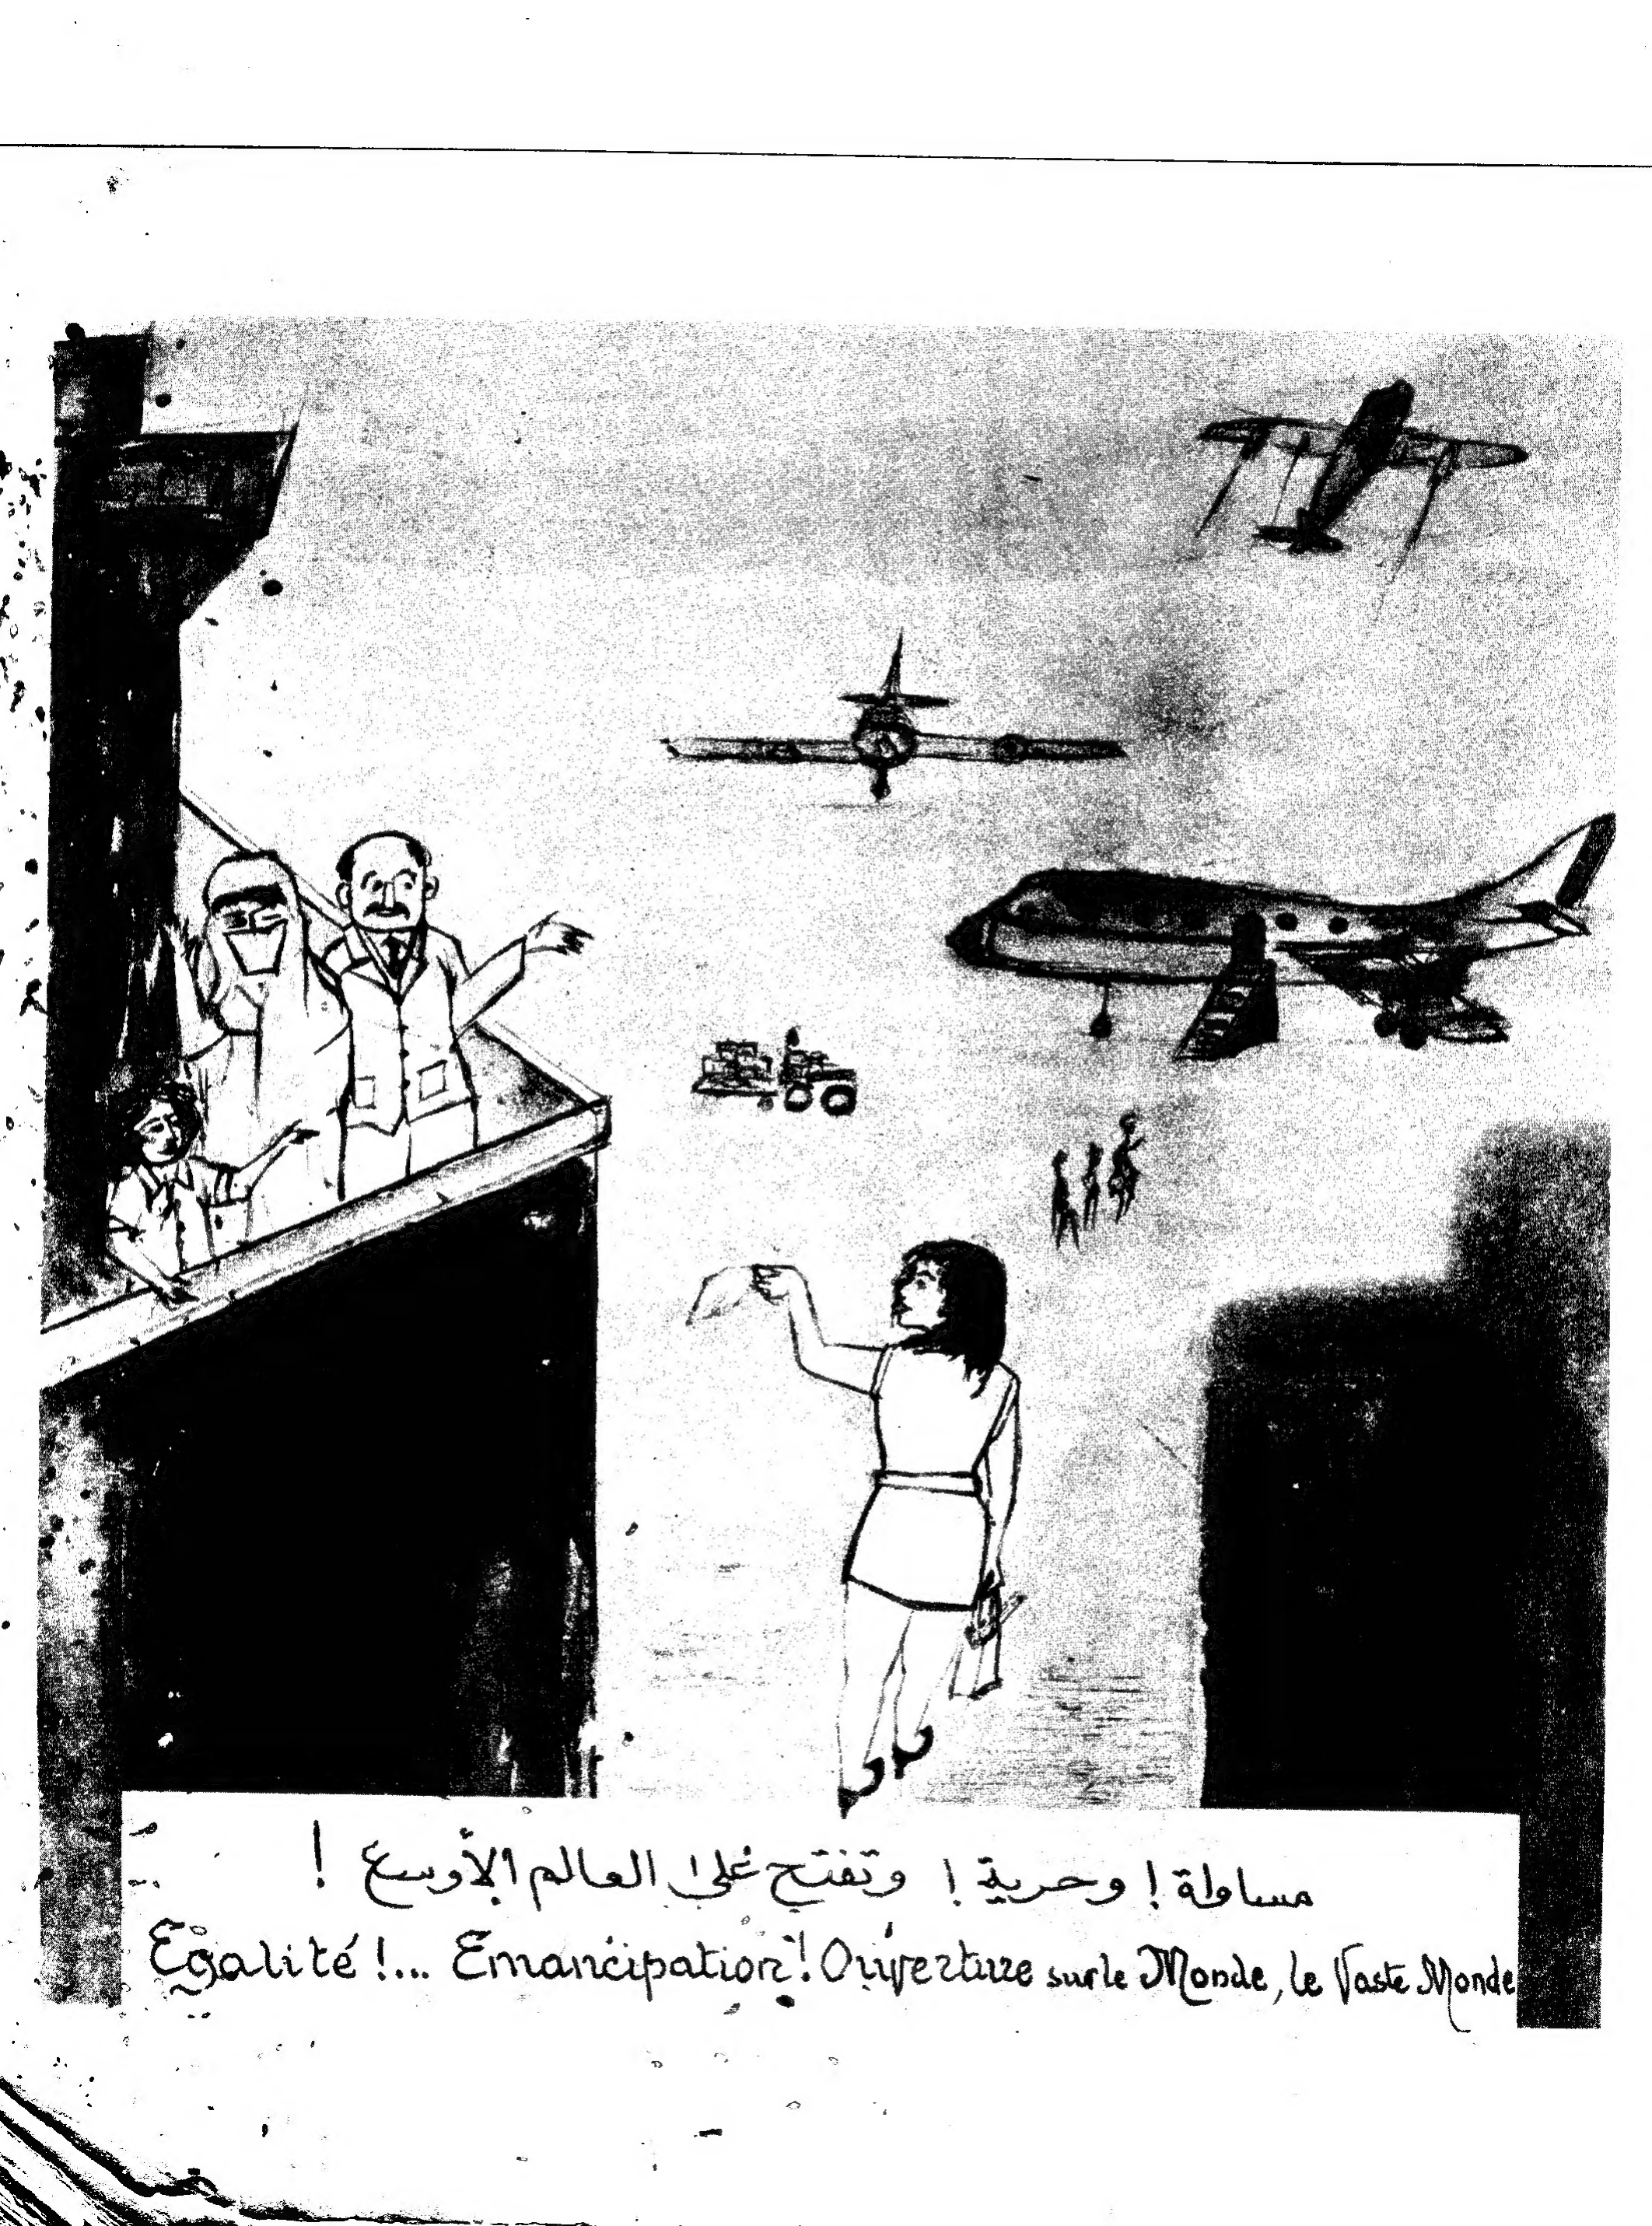 مساواة ! وحرية ! وتفتح على العالم الأوسع !
Egalité !... Emancipation ! Ouverture sur le Monde, le Vaste Monde